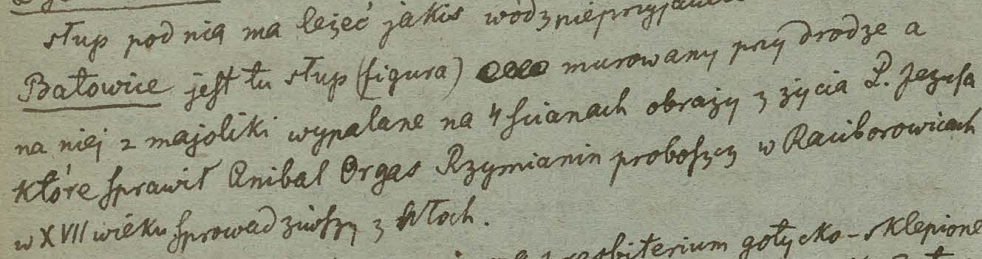 słup pod nią ma leżeć jakiś wódz nieprzyjaciel
Batowice jest tu słup (figura) murowany przy drodze a
na niej z majoliki wypalane na 4 ścianach obrazy z życia P. Jezusa
które sprawił Anibal Orgas Rzymianin proboszcz w Raciborowicach
w XVII wieku sprowadziwszy z Włoch.
presbiterium gotycko-sklepione